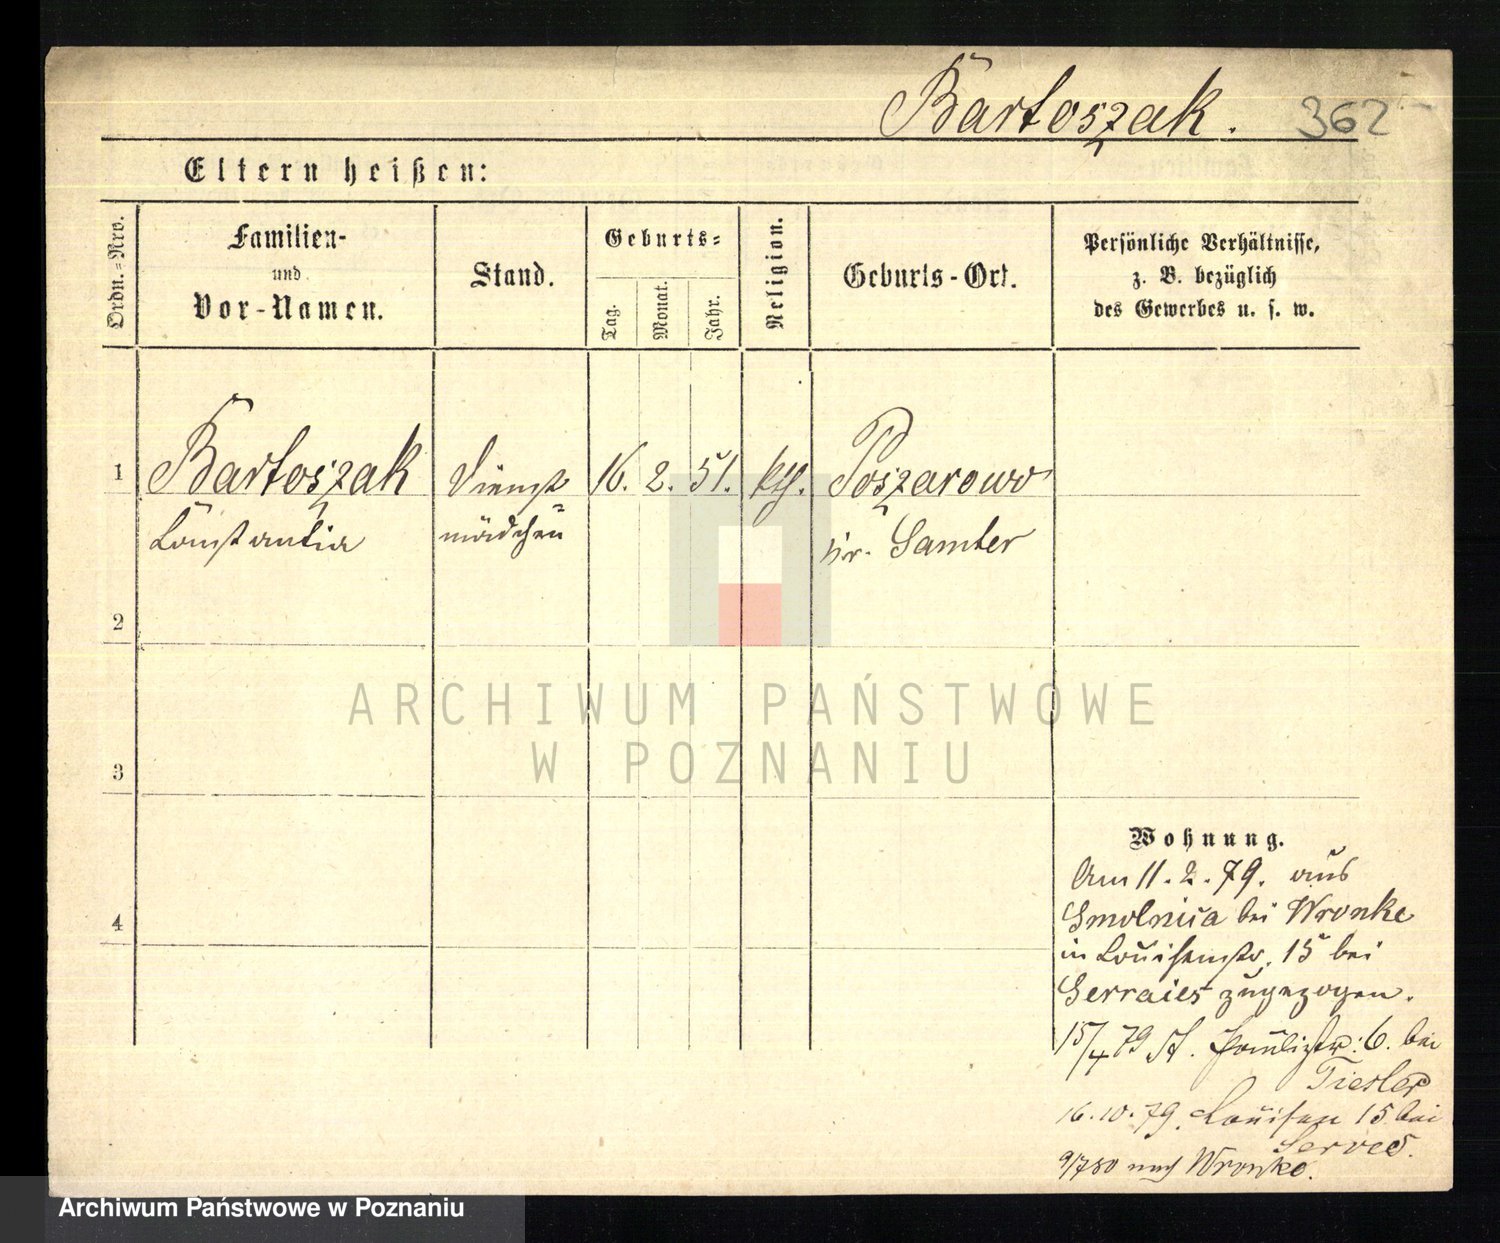 Bartoszak. 362
Eltern heißen:
Ordn.-Nro.
Familien-
und
Vor-Namen.
Stand.
Geburts-
Tag.
Monat.
Jahr.
Religion.
Geburts-Ort.
Persönliche Verhältnisse,
z. B. bezüglich
des Gewerbes u. s. w.
1 Bartoszak Dienst 16. 2. 51. kth. Poszarowo
Constantia mädchen kr. Samter
2
3
4
Wohnung.
Am 11. 2. 79. aus
Smolnica bei Wronke
in Louisenstr. 15 bei
zugezogen.
15/4 79 St. Paulistr. 6. bei
Tiesler
16.10.79. Louisen 15 bei
9/7 80 nach Wronke.
ARCHIWUM PAŃSTWOWE
W POZNANIU
Archiwum Państwowe w Poznaniu